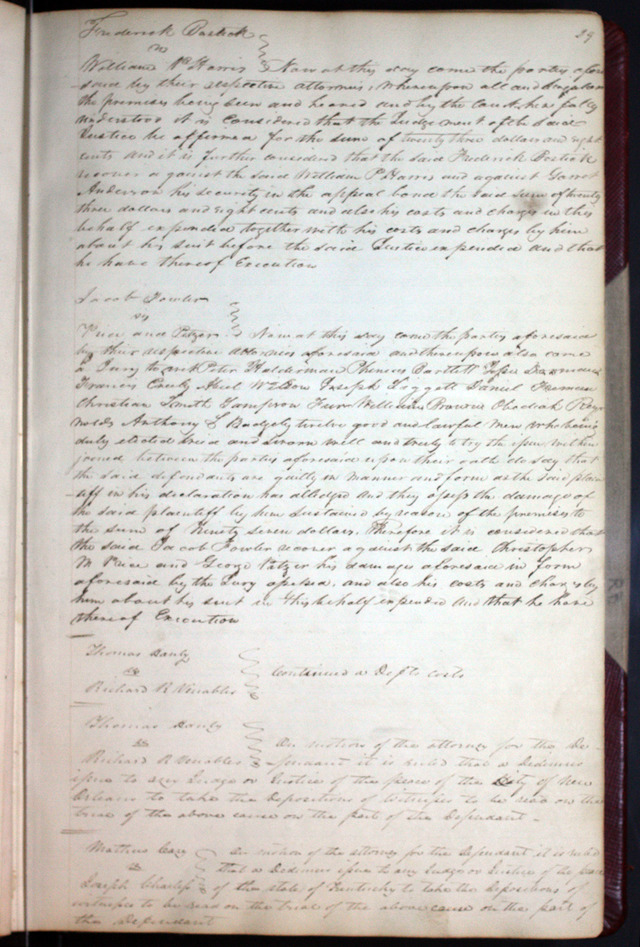 29
Frederick Bostick
vs
William P Harris Now at this day came the parties afore
said by their respective attornies, Whereupon all and singular
the premises being seen and heard and by the Court here fully
understood it is Considered that the Judgement of the said
Justice be affirmed for the sum of twenty three dollars and eight
cents and it is further considered that the said Frederick Bostick
recover against the said William P Harris and against
Anderson his security in the appeal bond the said sum of twenty
three dollars and eight cents and also his costs and charges in this
behalf expended together with his costs and charges by him
about his suit before the said Justice expended and that
he have thereof Execution
Jacob Fowler
vs
Price and Pitzer Now at this day came the parties aforesaid
by their respective attornies aforesaid and thereupon also came
a Jury to wit Peter Halderman Phineas Bartlett
Francis Abiel Wilson Joseph Daniel
Christian Smith Sampson William Obadiah Rey
nolds Anthony S Badgely twelve good and lawful men who being
duly elected tried and sworn well and truly to try the issue within
joined between the parties aforesaid upon their oath do say that
the said defendants are guilty in manner and form as the said plain
tiff in his declaration has alledged and they assess the damage of
the said plaintiff by him sustained by reason of the premises to
the sum of Ninety seven dollars. Therefore it is considered that
the said Jacob Fowler recover against the said Christopher
M Price and George Pitzer his damages aforesaid in form
aforesaid by the Jury assessed, and also his costs and charges by
him about his suit in this behalf expended and that he have
thereof Execution
Thomas Hanly
vs Continued a Defts costs
Richard R Venables
Thomas Hanly
vs On motion of the attorney for the De-
Richard R Venables fendant it is ruled that a Dedimus
issue to any Judge or Justice of the peace of the City of New
Orleans to take the depositions of witnesses to be read on the
trial of the above cause on the part of the Defendant -
Mathew On motion of the attorney for the Defendant it is ruled
vs that a Dedimus issue to any Judge or Justice of the peace
Joseph Charless of the state of Kentucky to take the depositions of
witnesses to be read on the trial of the above cause on the part of
the Defendant